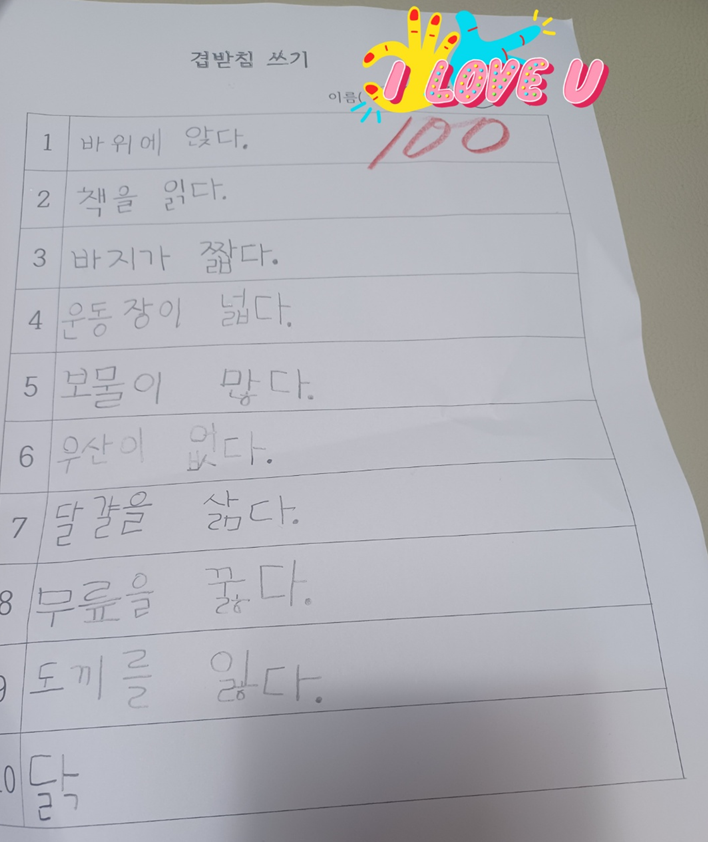 겹받침 쓰기
I LOVE U
이름(
100
1 바위에 앉다.
2 책을 읽다.
3 바지가 짧다.
4 운동장이 넓다.
5 보물이 많다.
6 우산이 없다.
7 달걀을 삶다.
8 무릎을 꿇다.
9 도끼를 잃다.
10 닭